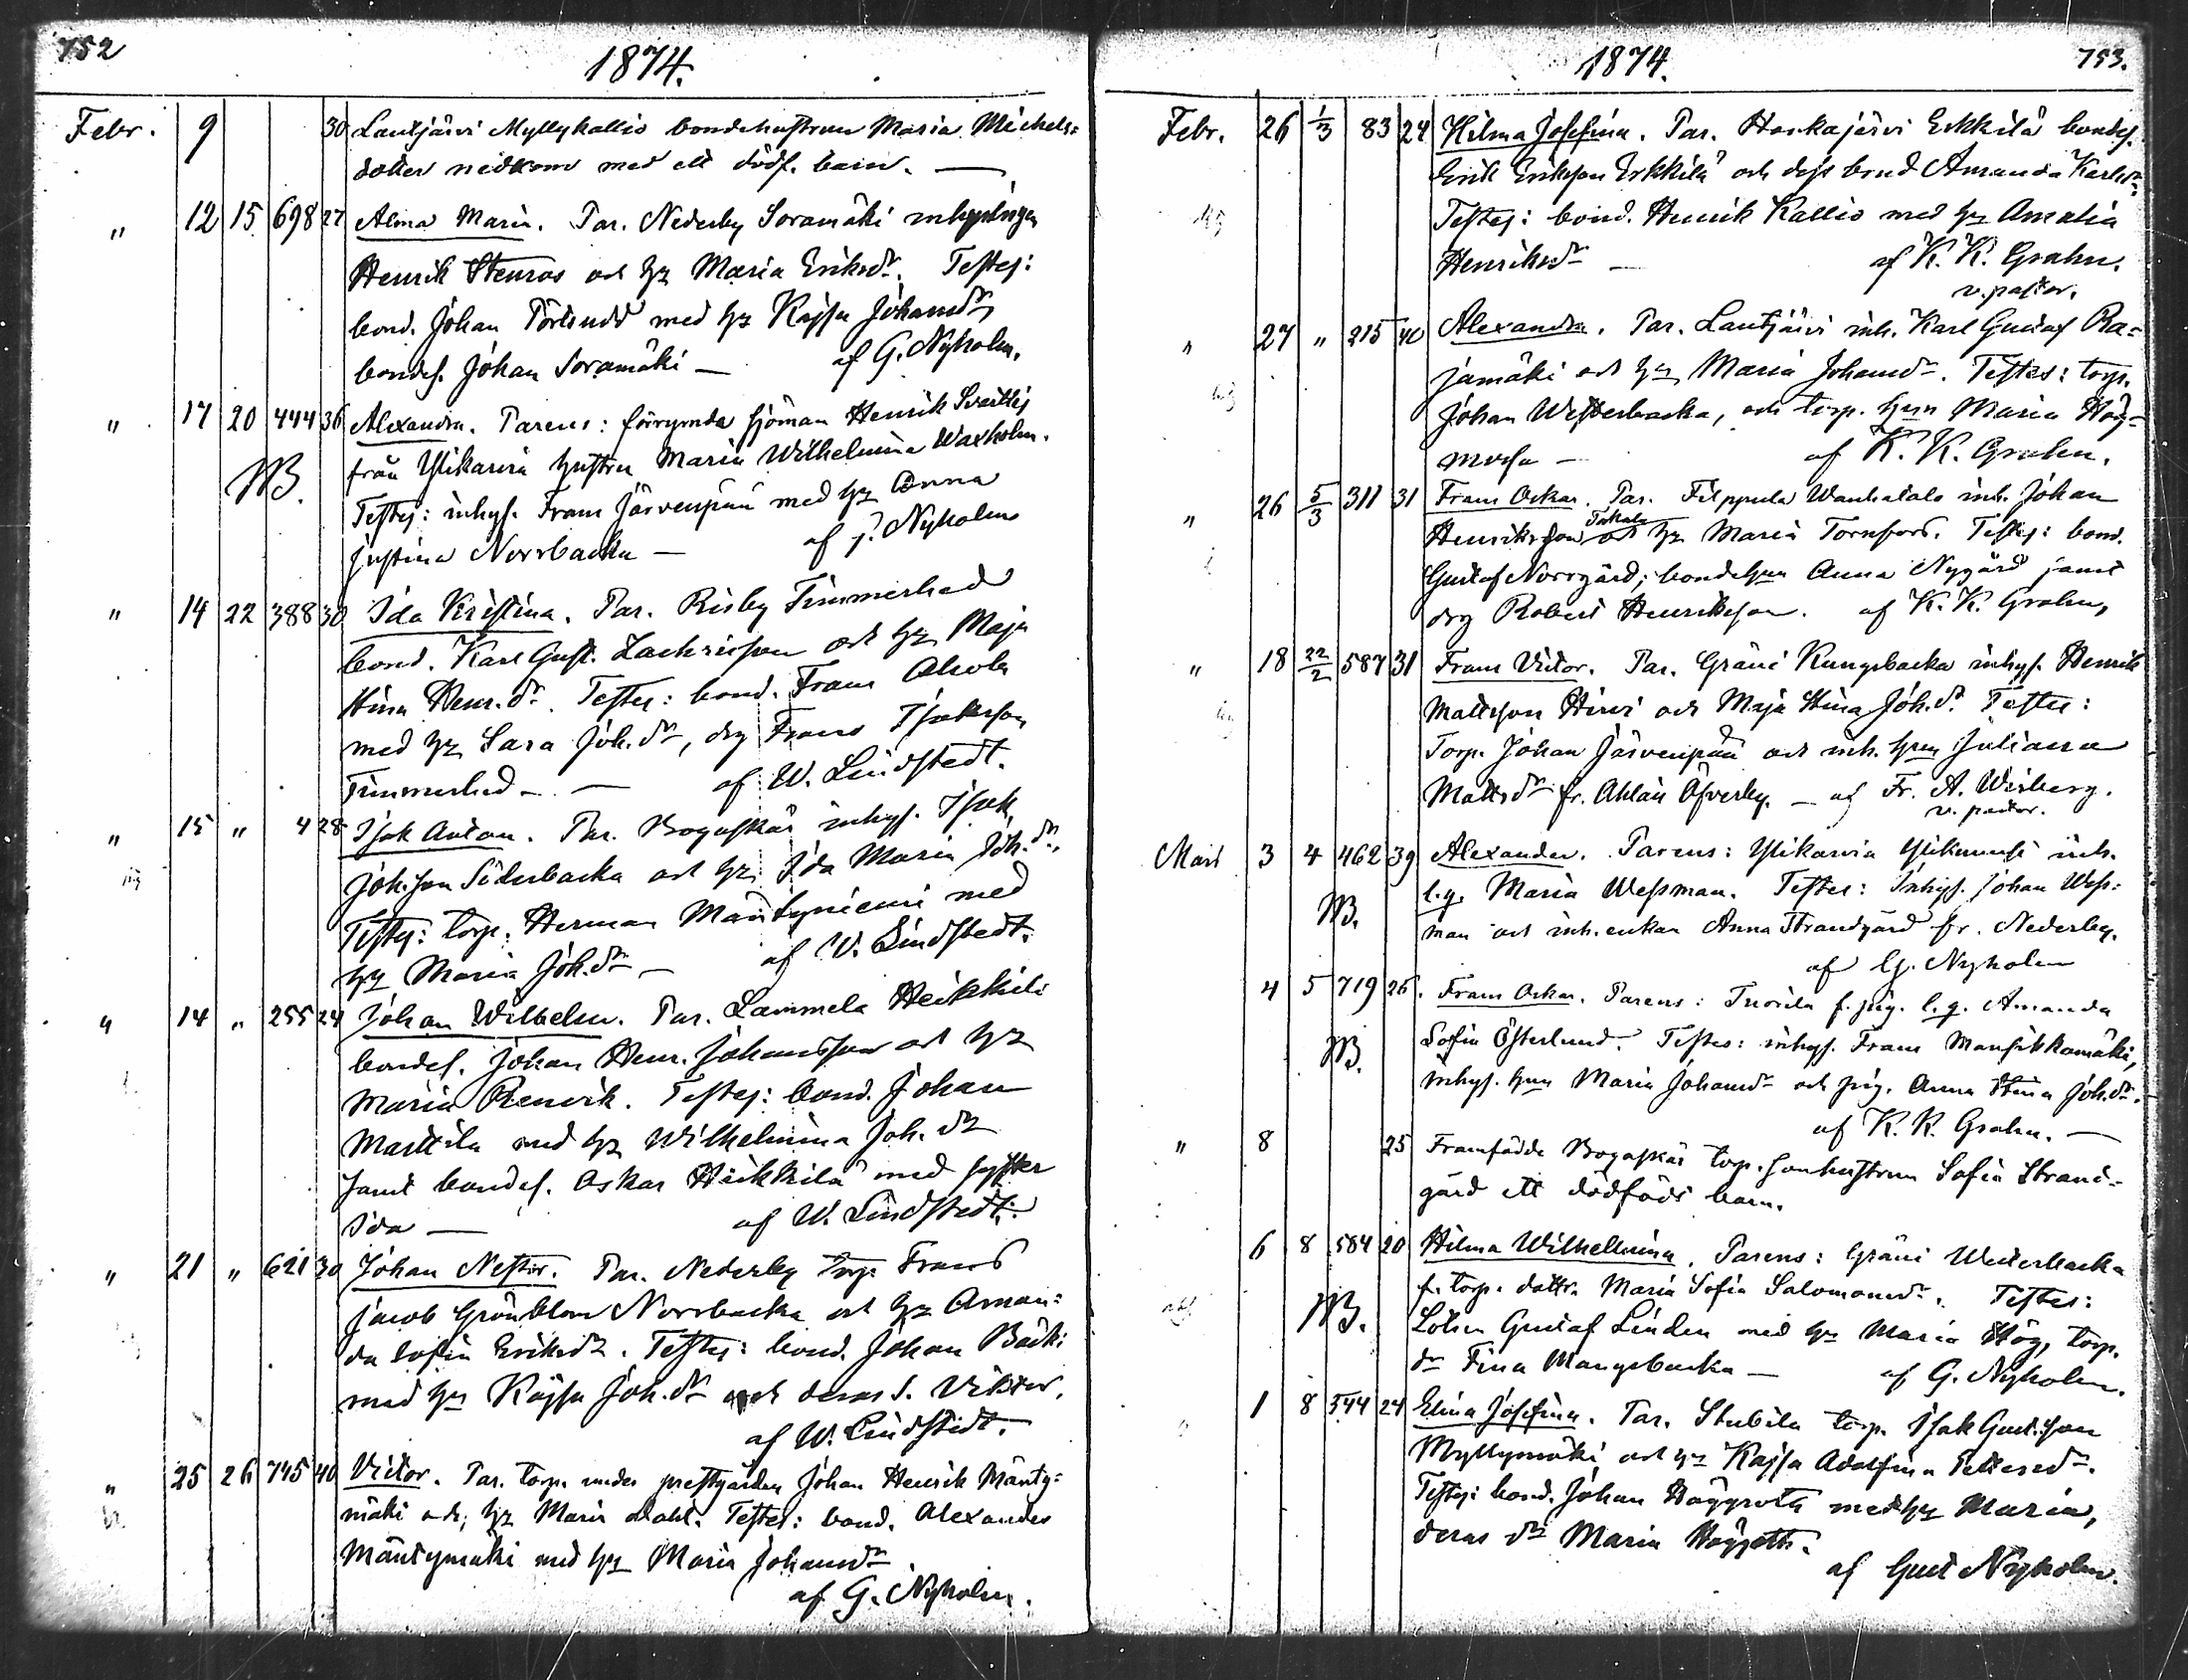 752
1874.
Febr. 9 30 Lautjärvi Myllykallio bondehustrun Maria Michels=
dotter nedkom med ett dödf. barn. —
" 12 15 698 27 Alma Maria. Par. Nederby Soramäki inhysingen
Henrik Stenros och hu Maria Eriksdr. Testes:
bond. Johan Törlund med hu Kajsa Johansdr,
bondes. Johan Soramäki — af G. Nyholm.
" 17 20 444 36 Alexandra. Parens: förrymda sjöman Henrik
från Ylikarvia hustru Maria Wilhelmina Waxholm.
NB. Testes: inhys. Frans Järvenpää med hu Anna
Justina Norrbacka — af G. Nyholm
" 14 22 388 30 Ida Kristina. Par. Risby Timmerhed
bond. Karl Gust. Zachrisson och hu Maja
Stina Henr.dr. Testes: bond. Frans
med hu Sara Joh.dr, drg Frans Isaksson
Timmerhed — af W. Lindstedt.
" 15 " 4 28 Isak Anton. Par. Bogaskär inhys. Isak
Joh.son Söderbacka och hu Ida Maria Joh.dr.
Testes: torp. Herman Mäntyniemi med
hu Maria Joh.dr — af W. Lindstedt.
" 14 " 255 24 Johan Wilhelm. Par. Lammela Heikkilä
bondes. Johan Henr. Johansson och hu
Maria Renvik. Testes: bond. Johan
Marttila med hu Wilhelmina Joh.dr
samt bondes. Oskar Heikkilä med syster
Ida — af W. Lindstedt.
" 21 " 621 30 Johan Nestor. Par. Nederby torp. Frans
Jacob Grönblom Norrbacka och hu Aman=
da Sofia Eriksdr. Testes: bond. Johan Backi
med hu Kajsa Joh.dr och deras s. Viktor.
af W. Lindstedt.
" 25 26 745 40 Victor. Par. torp. under prestgården Johan Henrik Mänty=
mäki och hu Maria Testes: bond. Alexander
Mäntymäki med hu Maria Johansdr
af G. Nyholm.
1874.
753.
Febr. 26 1/3 83 24 Hilma Josefina. Par. Honkajärvi Erkkilä bondes.
Erik Eriksson Erkkilä och dess brud Amanda Karlsdr
Testes: bond. Henrik Kallio med hu Amalia
Henriksdr — af K. K. Grahn.
v. pastor.
" 27 " 215 40 Alexandra. Par. Lautjärvi inh. Karl Gustaf Ra=
jamäki och hu Maria Johansdr. Testes: torp.
Johan Westerbacka, och torp. hun Maria Hög=
mossa — af K. K. Grahn.
" 26 5/3 311 31 Frans Oskar. Par. Filppula Wanhatalo inh. Johan
Henriksson Takala och hu Maria Tornfors. Testes: bond.
Gustaf Norrgård; bondehun Anna Nygård samt
drg Robert Henriksson. af K. K. Grahn,
" 18 22/2 587 31 Frans Victor. Par. Gräni Kungsbacka inhys. Henrik
Mattsson Hirvi och Maja Stina Joh.dr Testes:
Torp. Johan Järvenpää och inh. hun Juliana
Mattsdr fr. Ahlais Öfverby. — af Fr. A. Wisberg.
v. pastor.
Mars 3 4 462 39 Alexander. Parens: Ylikarvia inh.
l.q. Maria Wessman. Testes: Inhys. Johan Wess=
NB. man och inh. enkan Anna Strandgård fr. Nederby.
af G. Nyholm
4 5 719 26 Frans Oskar. Parens: Tuorila f. pig. l.q. Amanda
NB. Sofia Österlund. Testes: inhys. Frans Mansikkamäki,
inhys. hun Maria Johansdr och pig. Anna Stina Joh.dr.
af K. K. Grahn. —
" 8 25 Framfödde Bogaskär torp. sonhustrun Sofia Strand=
gård ett dödfödt barn.
6 8 584 20 Hilma Wilhelmina. Parens: Gräni Westerbacka
f. torp. dottr. Maria Sofia Salomonsdr. Testes:
NB. Lotsen Gustaf Linden med hu Maria Hög, torp.
dr Fina Mangsbacka — af G. Nyholm.
1 8 544 24 Elina Josefina. Par. Stubila torp. Isak Gust.son
Myllymäki och hu Kajsa Adolfina Pettersdr.
Testes: bond. Johan Häggroth med hu Maria,
deras dr Maria Häggroth.
af Gust Nyholm.